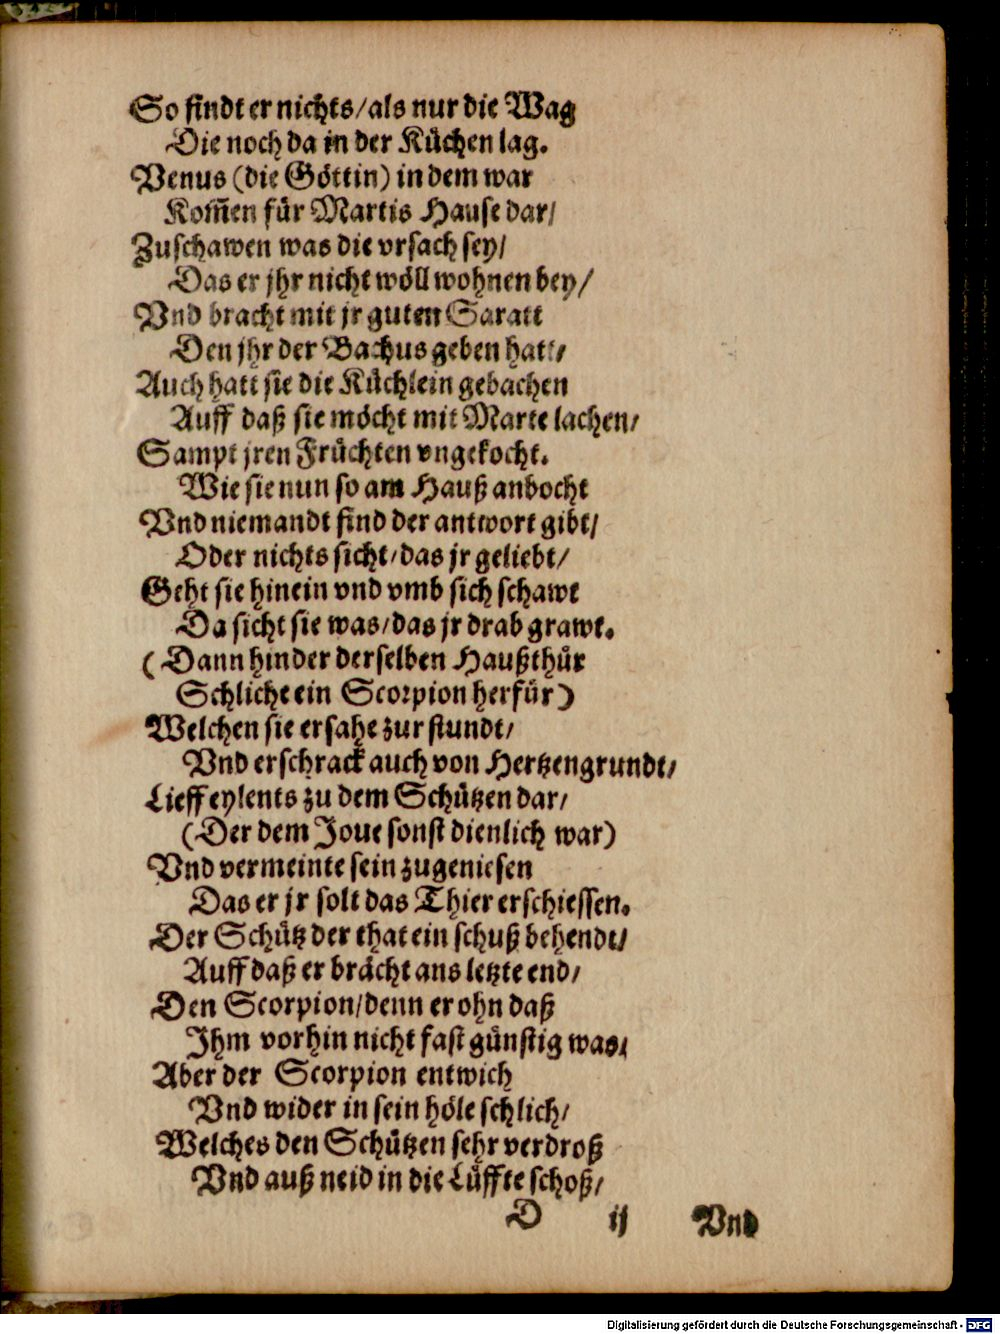 So findt er nichts/als nur die Wag
Die noch da in der Küchen lag.
Venus (die Göttin) in dem war
Kom̃en für Martis Hause dar/
Zuschawen was die vrsach sey/
Das er jhr nicht wöll wohnen bey/
Vnd bracht mit jr guten Saratt
Den jhr der Bachus geben hatt/
Auch hatt sie die Küchlein gebachen
Auff daß sie möcht mit Marte lachen/
Sampt jren Früchten vngekocht.
Wie sie nun so am Hauß anbocht
Vnd niemandt find der antwort gibt/
Oder nichts sicht/das jr geliebt/
Geht sie hinein vnd vmb sich schawt
Da sicht sie was/das jr drab grawt.
(Dann hinder derselben Haußthür
Schlicht ein Scorpion herfür)
Welchen sie ersahe zur stundt/
Vnd erschrack auch von Hertzengrundt/
Lieff eylents zu dem Schützen dar/
(Der dem Joue sonst dienlich war)
Vnd vermeinte sein zugeniesen
Das er jr solt das Thier erschiessen.
Der Schütz der that ein schuß behendt/
Auff daß er brächt ans letzte end/
Den Scorpion/denn er ohn daß
Ihm vorhin nicht fast günstig was/
Aber der Scorpion entwich
Vnd wider in sein höle schlich/
Welches den Schützen sehr verdroß
Vnd auß neid in die Lüffte schoß/
D ij Vnd
Digitalisierung gefördert durch die Deutsche Forschungsgemeinschaft - DFG